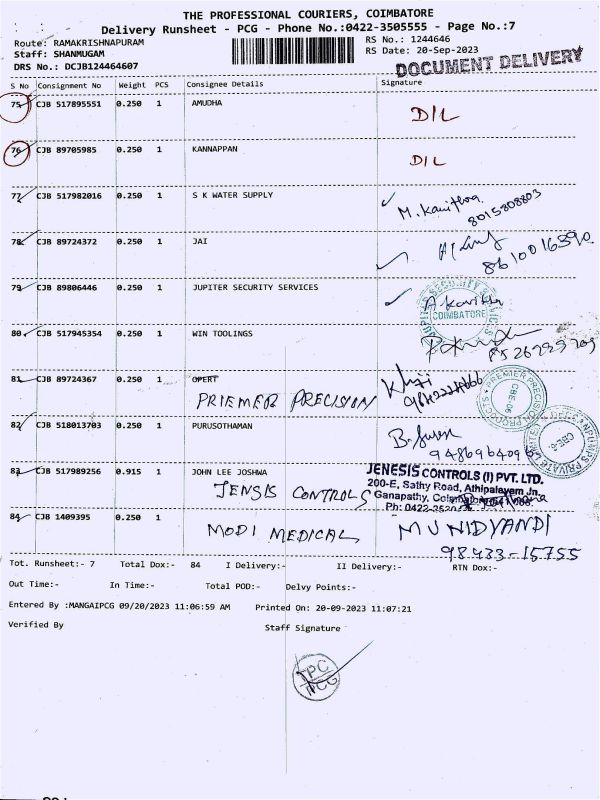 THE PROFESSIONAL COURIERS, COIMBATORE
Delivery Runsheet - PCG - Phone No.:0422-3505555 - Page No.:7
Route: RAMAKRISHNAPURAM RS No.: 1244646
Staff: SHANMUGAM RS Date: 20-Sep-2023
DRS No.: DCJB124464607 DOCUMENT DELIVERY
S No Consignment No Weight PCS Consignee Details Signature
75 CJB 517895551 0.250 1 AMUDHA D/L
76 CJB 89705985 0.250 1 KANNAPPAN D/L
77 CJB 517982016 0.250 1 S K WATER SUPPLY M. Kavitha
8015808803
78 CJB 89724372 0.250 1 JAI
8610016590
79 CJB 89806446 0.250 1 JUPITER SECURITY SERVICES A. Kavitha
COIMBATORE
80 CJB 517945354 0.250 1 WIN TOOLINGS
81 CJB 89724367 0.250 1 OPERT
PRIEMER PRECISION
PREMIER PRECISION PRODUCTS CBE-06
82 CJB 518013703 0.250 1 PURUSOTHAMAN
CBE-6
83 CJB 517989256 0.915 1 JOHN LEE JOSHWA JENESIS CONTROLS (I) PVT. LTD.
JENSIS CONTROLS 200-E, Sathy Road, Athipalayam Jn,
Ganapathy,
Ph: 0422-
84 CJB 1409395 0.250 1 MODI MEDICAL MUNIDYANDI
98433-15755
Tot. Runsheet:- 7 Total Dox:- 84 I Delivery:- II Delivery:- RTN Dox:-
Out Time:- In Time:- Total POD:- Delvy Points:-
Entered By :MANGAIPCG 09/20/2023 11:06:59 AM Printed On: 20-09-2023 11:07:21
Verified By Staff Signature
TPC
PCG